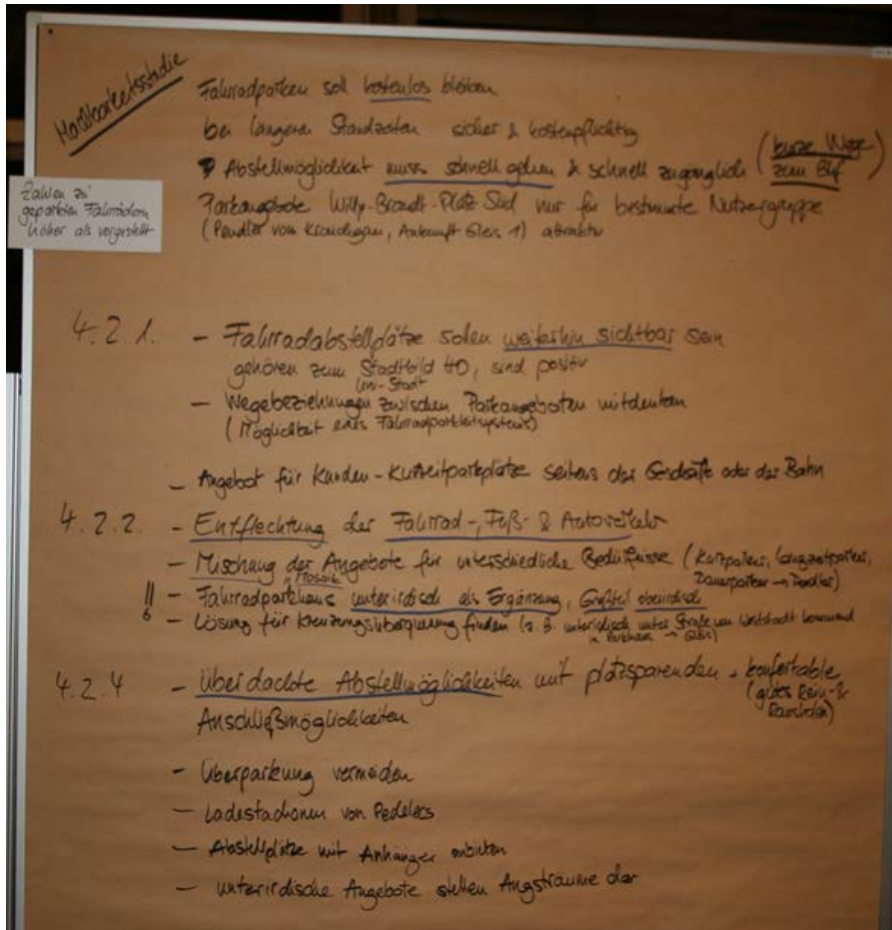 Machbarkeitsstudie
Fahrradparken soll kostenlos bleiben
bei längeren Standzeiten sicher & kostenpflichtig
Abstellmöglichkeit muss schnell gehen & schnell zugänglich (kurze Wege
zum Bhf)
Zahlen zu
geparkten Fahrrädern
höher als vorgestellt
Parkangebote Willy-Brandt-Platz Süd nur für bestimmte Nutzergruppe
(Pendler von Kraichgau, Ankunft Gleis 1) attraktiv
4.2.1. - Fahrradabstellplätze sollen weiterhin sichtbar sein
gehören zum Stadtbild HD, sind positiv
Uni-Stadt
- Wegebeziehungen zwischen Parkangeboten mitdenken
(Möglichkeit eines Fahrradparkleitsystems)
- Angebot für Kunden-Kurzzeitparkplätze seitens der Geschäfte oder der Bahn
4.2.2. - Entflechtung der Fahrrad-, Fuß- & Autoverkehr
- Mischung der Angebote für unterschiedliche Bedürfnisse (Kurzparker, Langzeitparker,
"Mosaik Dauerparker → Pendler)
!! - Fahrradparkhaus unterirdisch als Ergänzung, Großteil oberirdisch
6 - Lösung für Kreuzungsüberquerung finden (z.B. unterirdisch unter Straße von Weststadt kommend
in Parkhaus → Gleis)
4.2.4 - Überdachte Abstellmöglichkeiten mit platzsparenden + komfortable
(gutes Rein- &
Rausholen)
Anschließmöglichkeiten
- Überparkung vermeiden
- Ladestationen von Pedelecs
- Abstellplätze mit Anhänger anbieten
- unterirdische Angebote stellen Angsträume dar